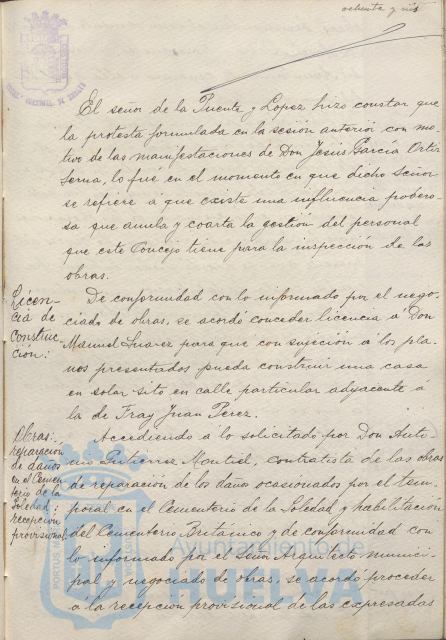 ochenta y seis
El señor de la Puente y Lopez hizo constar que
la protesta formulada en la sesión anterior con mo
tivo de las manifestaciones de Don Jesús García Ortiz
Serna, lo fué en el momento en que dicho señor
se refiere a que existe una influencia podero-
sa que anula y coarta la gestión del personal
que este Concejo tiene para la inspección de las
obras.
Licen-
cia de
Construc-
ción:
De conformidad con lo informado por el nego-
ciado de obras, se acordó conceder licencia á Don
Manuel Suarez para que con sujeción a los pla-
nos presentados pueda construir una casa
en solar sito en calle particular adyacente á
la de Fray Juan Perez.
Obras:
reparación
de daños
en el Cemen
terio de la
Soledad:
recepción
provisional:
Accediendo a lo solicitado por Don Anto-
nio Gutierrez Montiel, contratista de las obras
de reparación de los daños ocasionados por el tem-
poral en el Cementerio de la Soledad y habilitación
del Cementerio Británico y de conformidad con
lo informado por el Señor Arquitecto munici-
pal y negociado de obras, se acordó proceder
á la recepción provisional de las expresadas
Ayuntamiento de
HUELVA